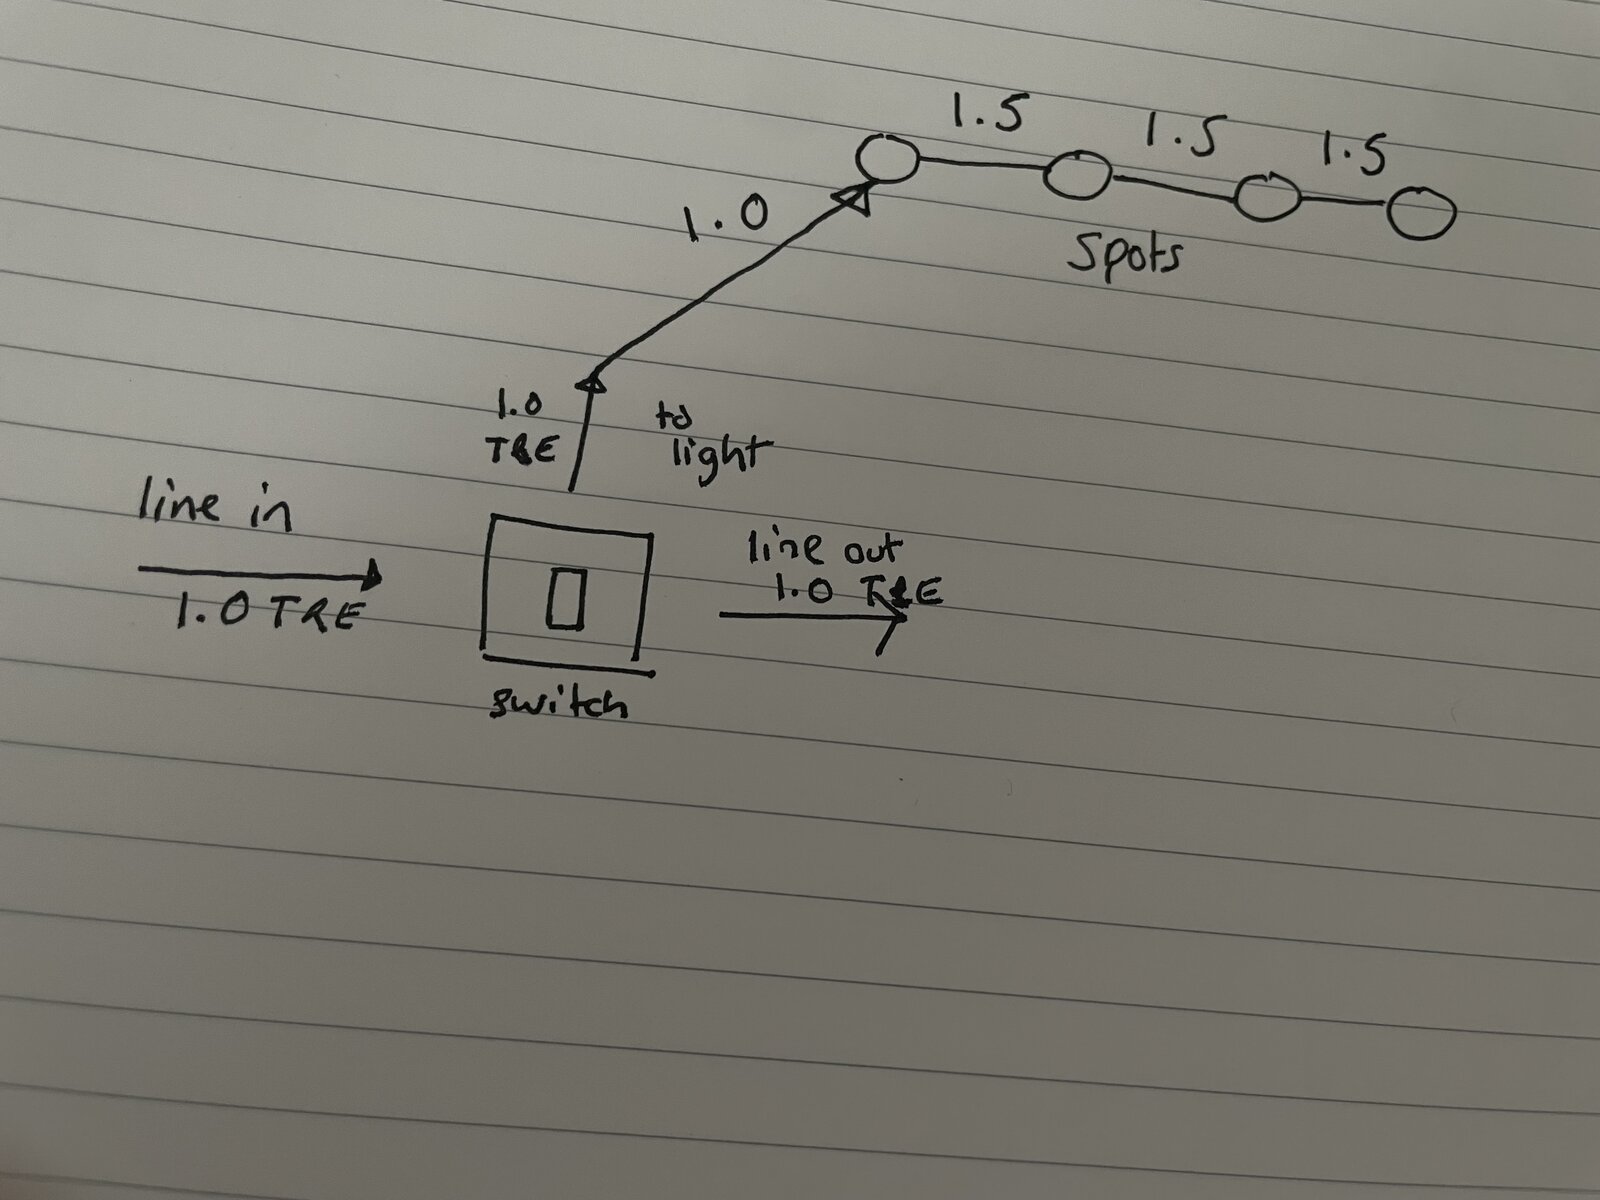 1.5
1.5
1.5
1.0
Spots
1.0
T&E
to
light
line in
1.0 T&E
line out
1.0 T&E
switch